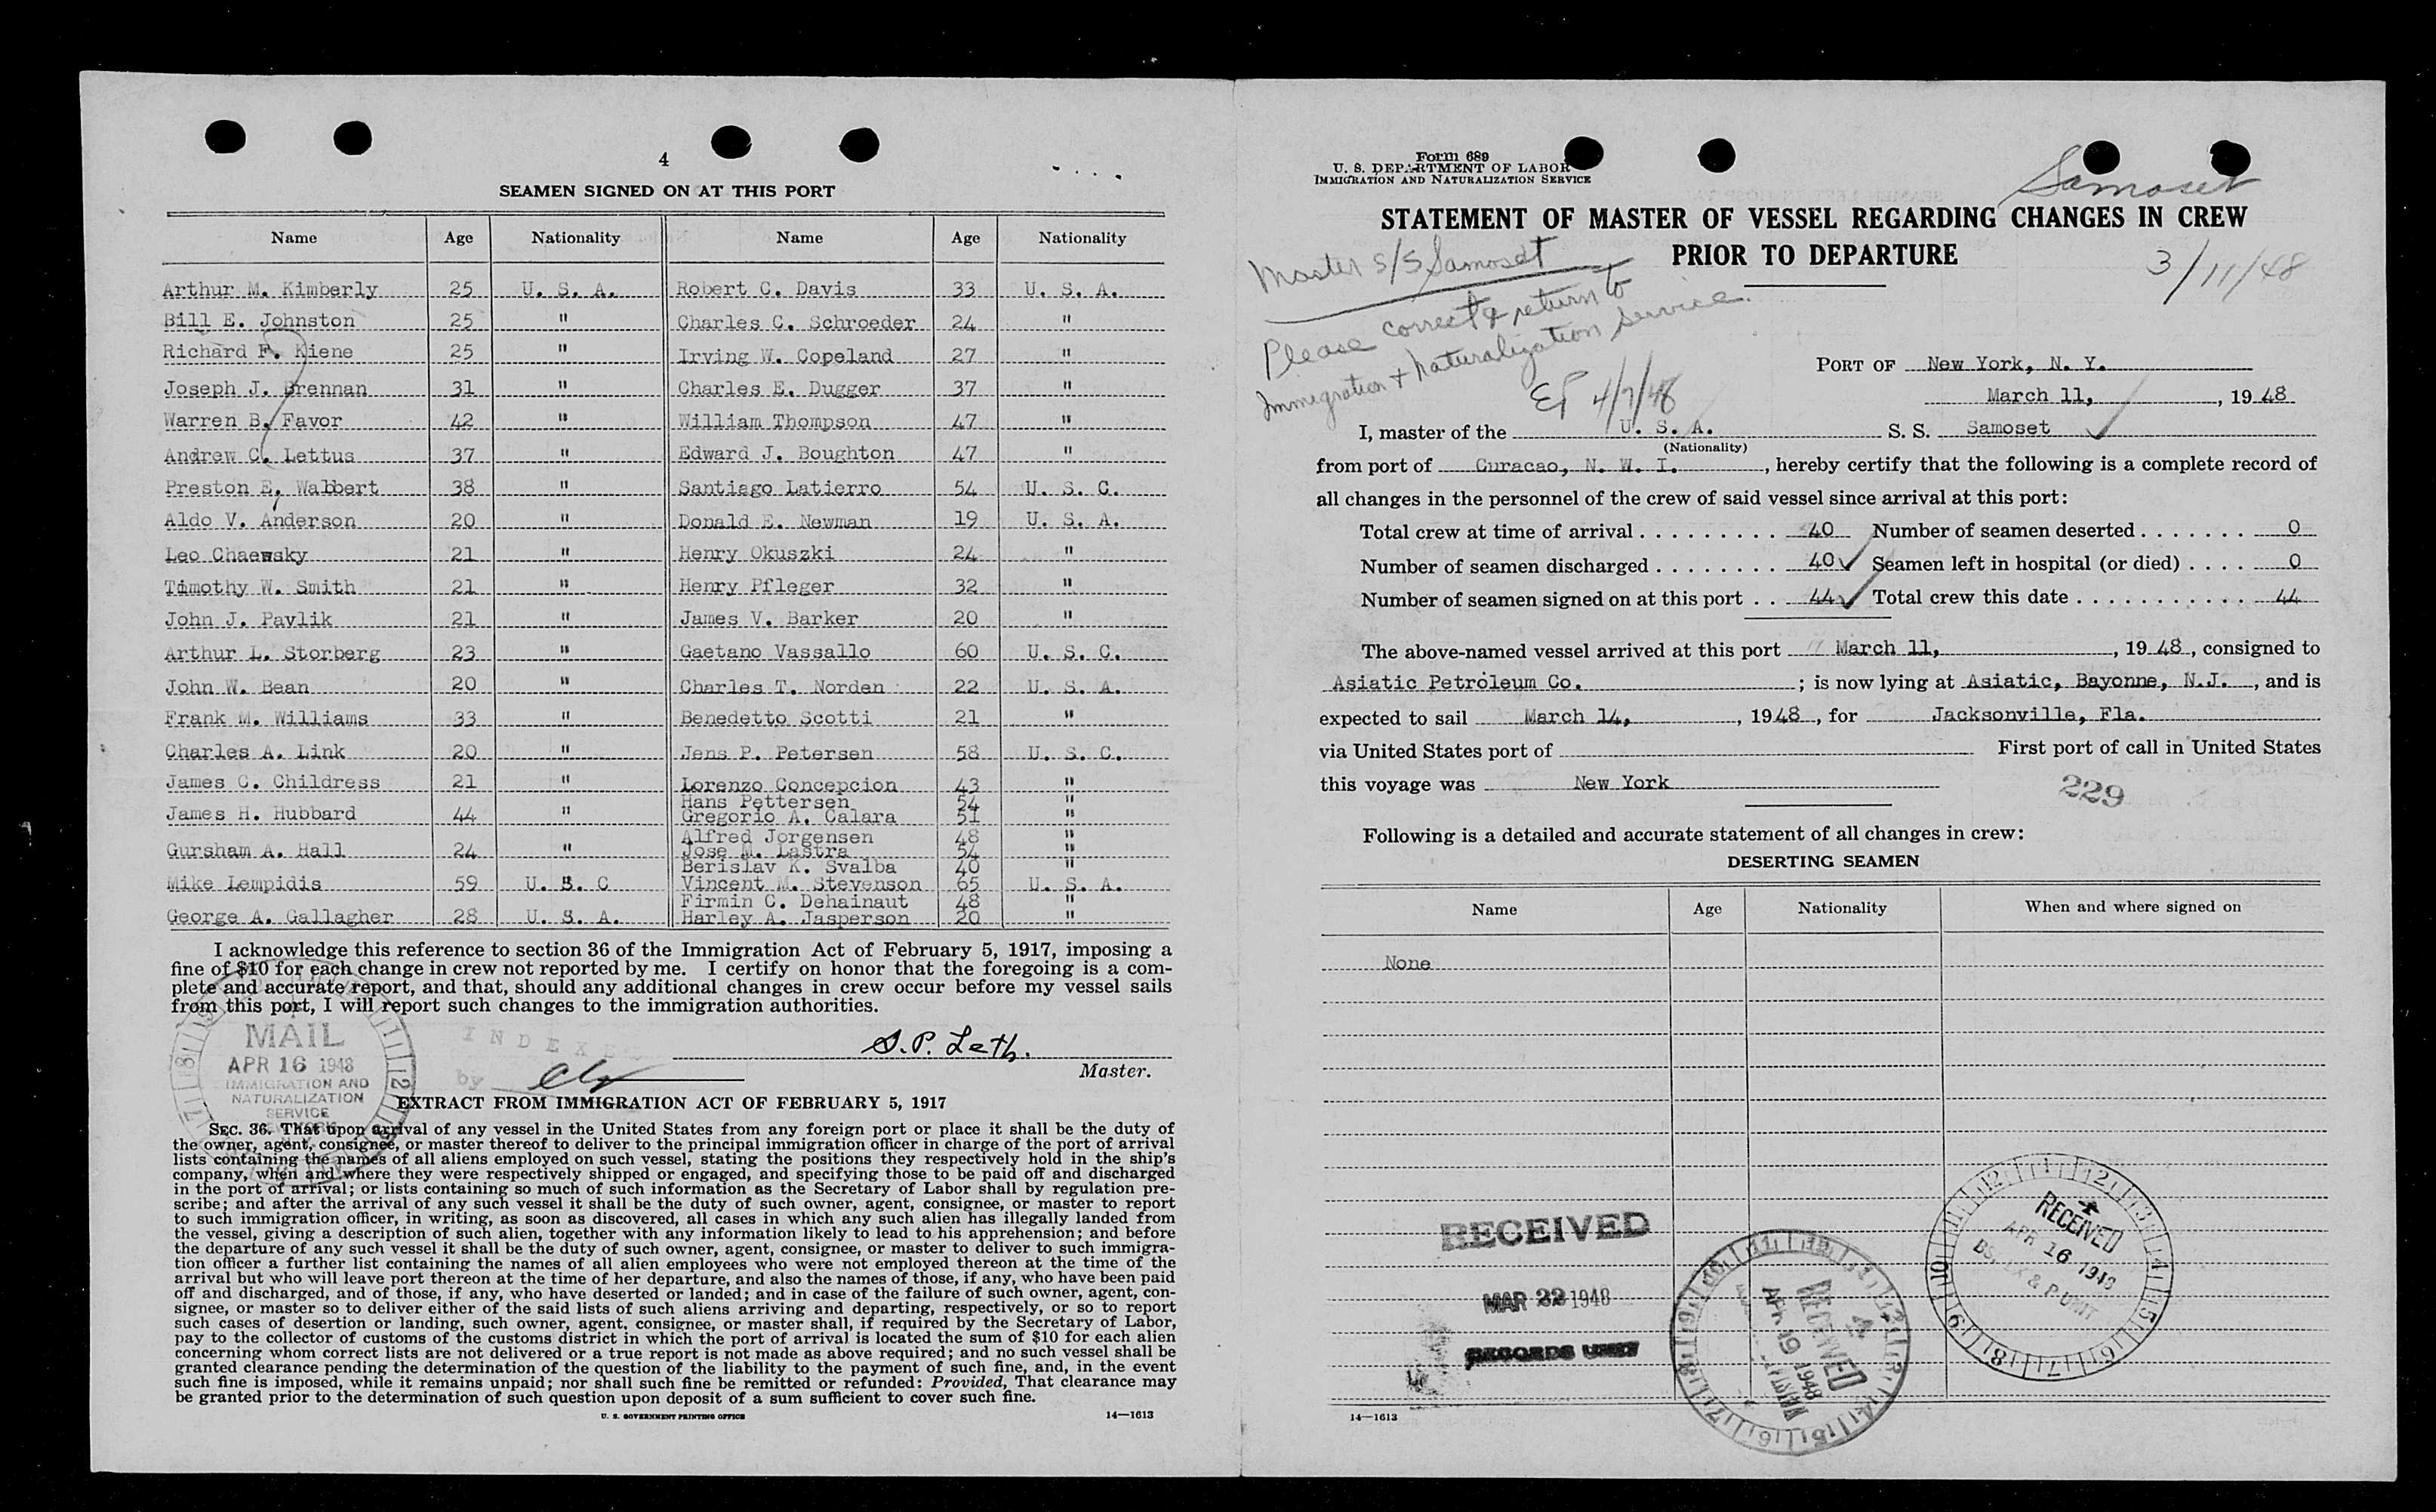 4
SEAMEN SIGNED ON AT THIS PORT
Name Age Nationality Name Age Nationality
Arthur M. Kimberly 25 U. S. A. Robert C. Davis 33 U. S. A.
Bill E. Johnston 25 " Charles C. Schroeder 24 "
Richard F. Kiene 25 " Irving W. Copeland 27 "
Joseph J. Brennan 31 " Charles E. Dugger 37 "
Warren B. Favor 42 " William Thompson 47 "
Andrew C. Lettus 37 " Edward J. Boughton 47 "
Preston E. Walbert 38 " Santiago Latierro 54 U. S. C.
Aldo V. Anderson 20 " Donald E. Newman 19 U. S. A.
Leo Chaewsky 21 " Henry Okuszki 24 "
Timothy W. Smith 21 " Henry Pfleger 32 "
John J. Pavlik 21 " James V. Barker 20 "
Arthur L. Storberg 23 " Gaetano Vassallo 60 U. S. C.
John W. Bean 20 " Charles T. Norden 22 U. S. A.
Frank M. Williams 33 " Benedetto Scotti 21 "
Charles A. Link 20 " Jens P. Petersen 58 U. S. C.
James C. Childress 21 " Lorenzo Concepcion 43 "
Hans Pettersen 54 "
James H. Hubbard 44 " Gregorio A. Calara 51 "
Alfred Jorgensen 48 "
Gursham A. Hall 24 " Jose M. Lastra 54 "
Berislav K. Svalba 40 "
Mike Lempidis 59 U. S. C Vincent M. Stevenson 65 U. S. A.
Firmin C. Dehainaut 48 "
George A. Gallagher 28 U. S. A. Harley A. Jasperson 20 "
I acknowledge this reference to section 36 of the Immigration Act of February 5, 1917, imposing a
fine of $10 for each change in crew not reported by me. I certify on honor that the foregoing is a com-
plete and accurate report, and that, should any additional changes in crew occur before my vessel sails
from this port, I will report such changes to the immigration authorities.
MAIL
APR 16 1948
IMMIGRATION AND
NATURALIZATION
SERVICE
INDEXED
by
S. P. Leth.
Master.
EXTRACT FROM IMMIGRATION ACT OF FEBRUARY 5, 1917
SEC. 36. That upon arrival of any vessel in the United States from any foreign port or place it shall be the duty of
the owner, agent, consignee, or master thereof to deliver to the principal immigration officer in charge of the port of arrival
lists containing the names of all aliens employed on such vessel, stating the positions they respectively hold in the ship's
company, when and where they were respectively shipped or engaged, and specifying those to be paid off and discharged
in the port of arrival; or lists containing so much of such information as the Secretary of Labor shall by regulation pre-
scribe; and after the arrival of any such vessel it shall be the duty of such owner, agent, consignee, or master to report
to such immigration officer, in writing, as soon as discovered, all cases in which any such alien has illegally landed from
the vessel, giving a description of such alien, together with any information likely to lead to his apprehension; and before
the departure of any such vessel it shall be the duty of such owner, agent, consignee, or master to deliver to such immigra-
tion officer a further list containing the names of all alien employees who were not employed thereon at the time of the
arrival but who will leave port thereon at the time of her departure, and also the names of those, if any, who have been paid
off and discharged, and of those, if any, who have deserted or landed; and in case of the failure of such owner, agent, con-
signee, or master so to deliver either of the said lists of such aliens arriving and departing, respectively, or so to report
such cases of desertion or landing, such owner, agent, consignee, or master shall, if required by the Secretary of Labor,
pay to the collector of customs of the customs district in which the port of arrival is located the sum of $10 for each alien
concerning whom correct lists are not delivered or a true report is not made as above required; and no such vessel shall be
granted clearance pending the determination of the question of the liability to the payment of such fine, and, in the event
such fine is imposed, while it remains unpaid; nor shall such fine be remitted or refunded: Provided, That clearance may
be granted prior to the determination of such question upon deposit of a sum sufficient to cover such fine.
U. S. GOVERNMENT PRINTING OFFICE 14—1613
Form 689
U. S. DEPARTMENT OF LABOR
IMMIGRATION AND NATURALIZATION SERVICE
Samoset
STATEMENT OF MASTER OF VESSEL REGARDING CHANGES IN CREW
PRIOR TO DEPARTURE
3/11/48
Master S/S Samoset
Please correct & return to
Immigration & Naturalization Service.
4/7/48
PORT OF New York, N. Y.
March 11, , 19 48
I, master of the U. S. A. S. S. Samoset
(Nationality)
from port of Curacao, N. W. I. , hereby certify that the following is a complete record of
all changes in the personnel of the crew of said vessel since arrival at this port:
Total crew at time of arrival . . . . . . . . . . 40 Number of seamen deserted . . . . . . . 0
Number of seamen discharged . . . . . . . . 40 Seamen left in hospital (or died) . . . . 0
Number of seamen signed on at this port . . 44 Total crew this date . . . . . . . . . . . 44
The above-named vessel arrived at this port March 11, , 19 48 , consigned to
Asiatic Petroleum Co. ; is now lying at Asiatic, Bayonne, N.J. , and is
expected to sail March 14, , 1948 , for Jacksonville, Fla.
via United States port of First port of call in United States
this voyage was New York
229
Following is a detailed and accurate statement of all changes in crew:
DESERTING SEAMEN
Name Age Nationality When and where signed on
None
RECEIVED
MAR 22 1948
RECORDS UNIT
RECEIVED
APR 19 1948
RECEIVED
APR 16 1948
14—1613